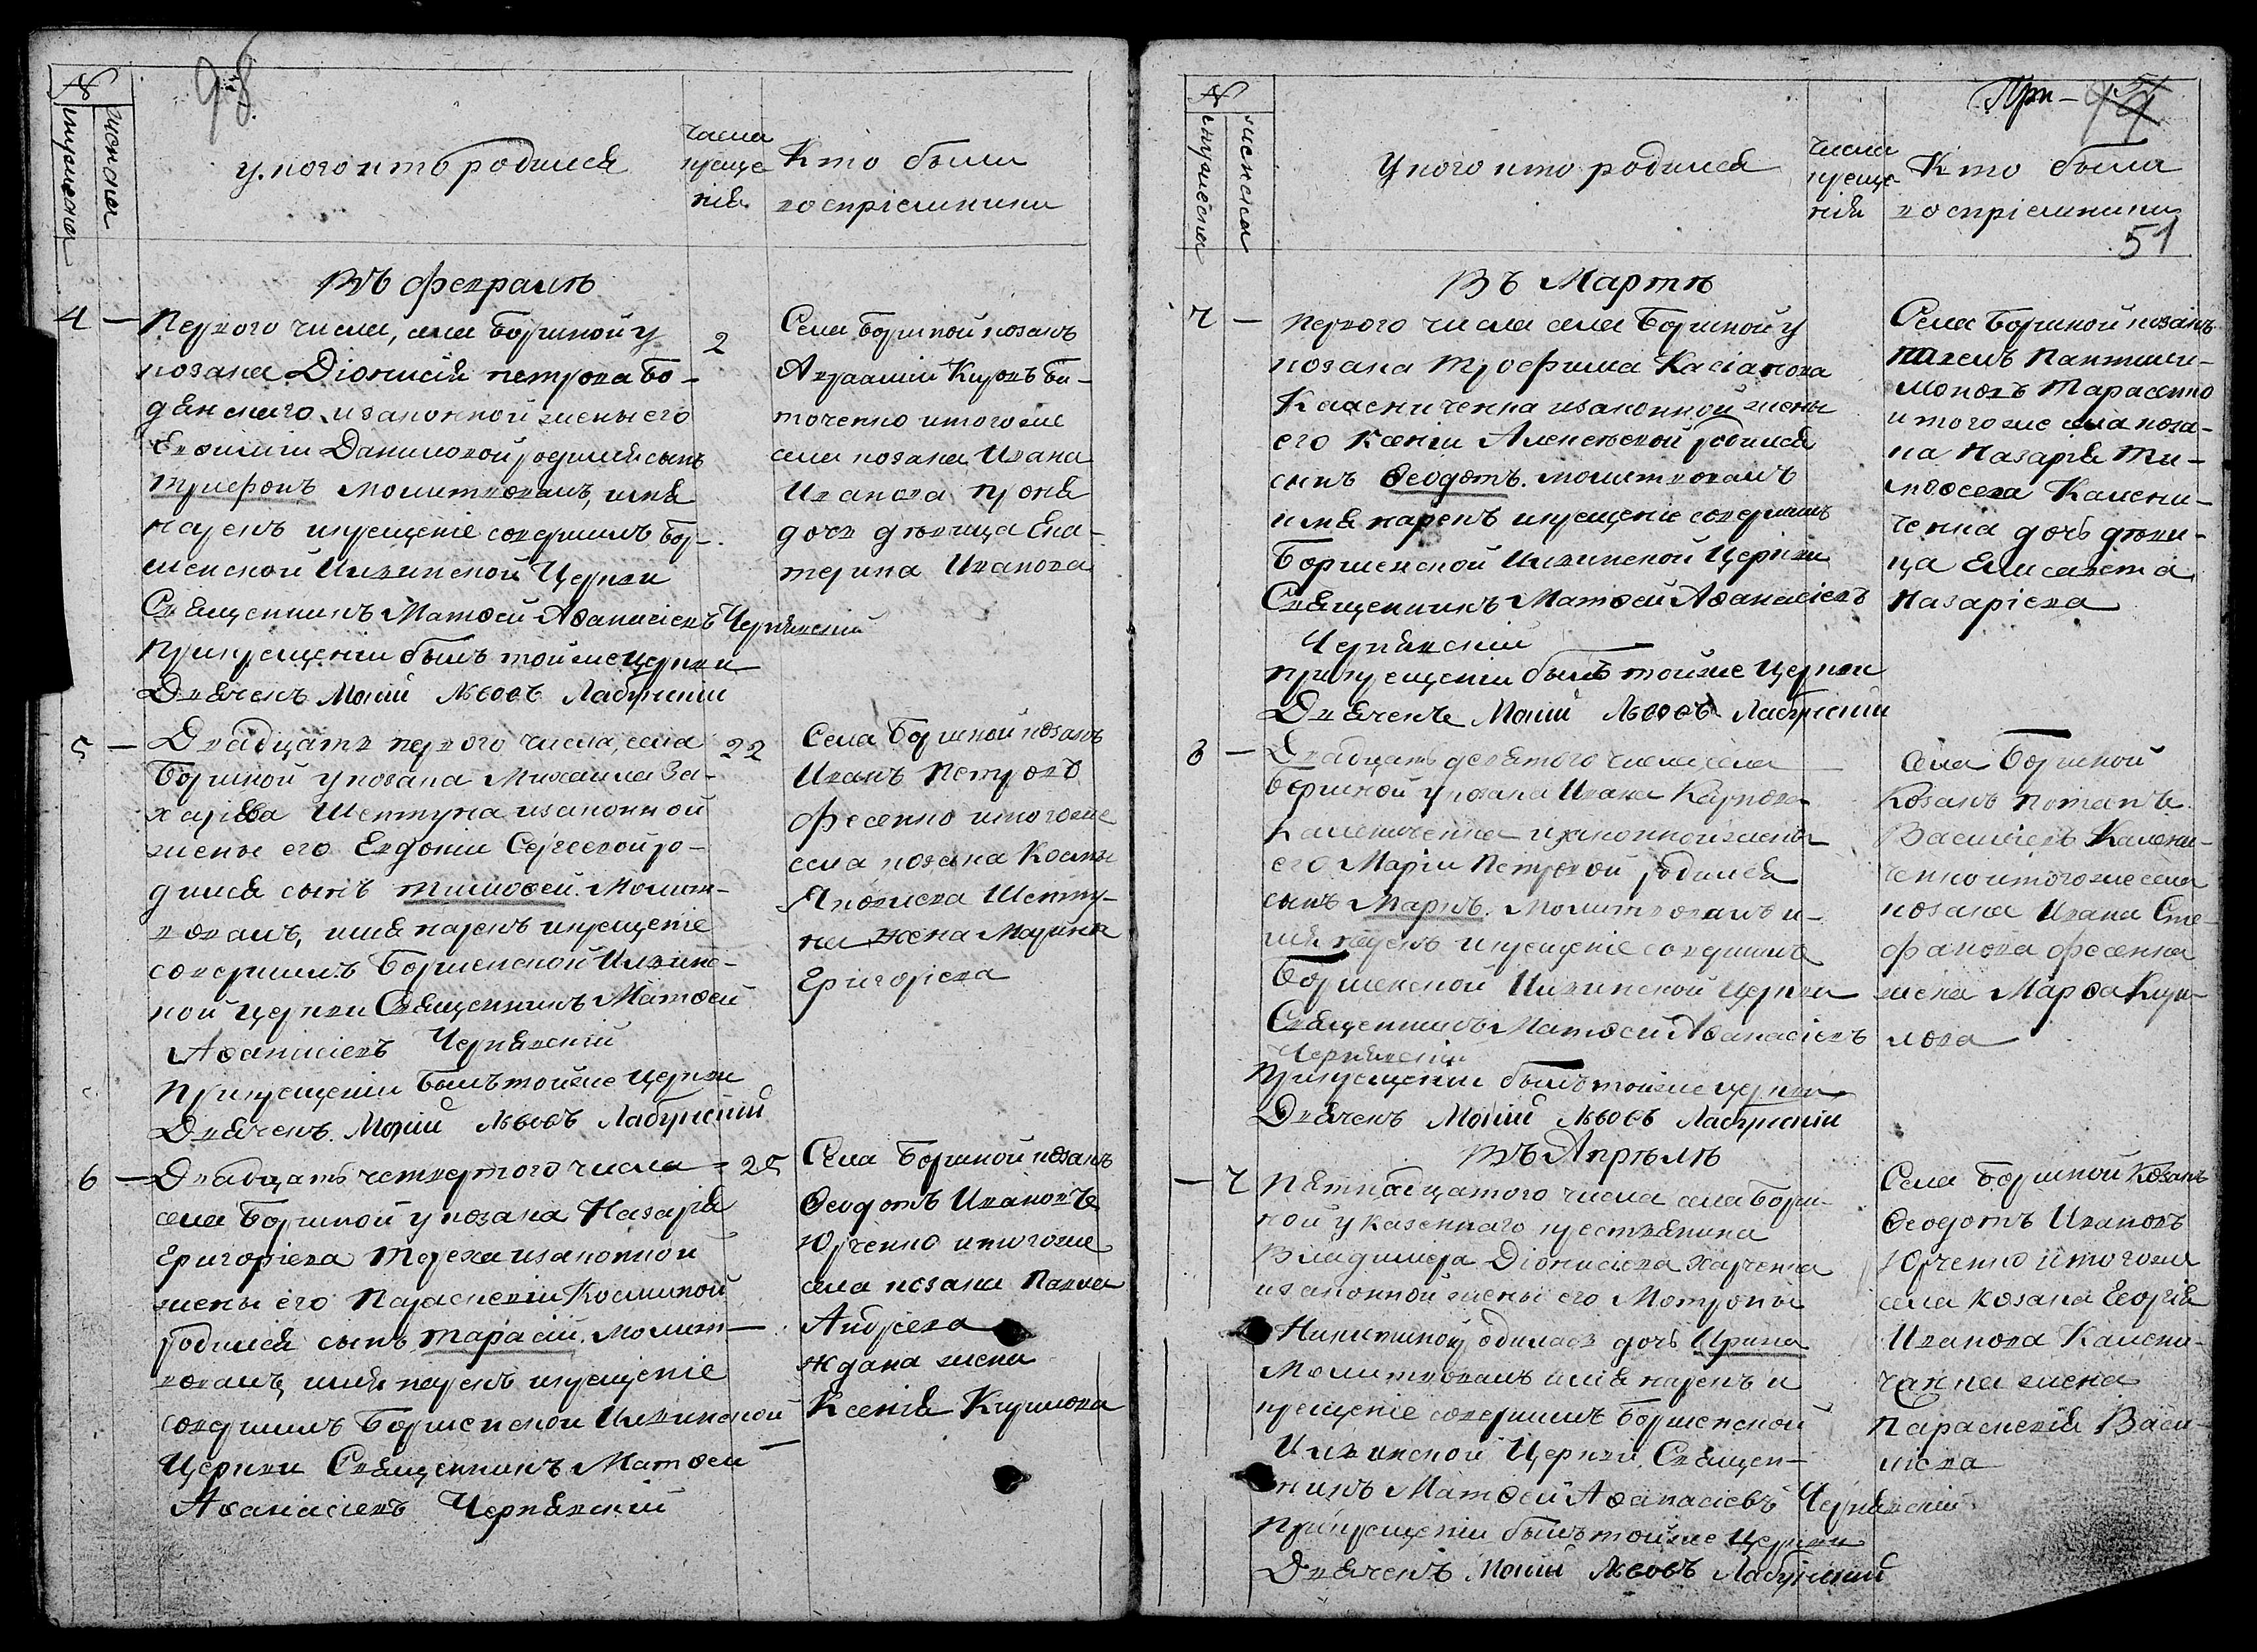 98
№
мужеска
женска
У кого кто родился
числа
креще
нія
Кто были
воспріемники
Въ Февралѣ
4
Первого числа, села Боршной у
козака Діонисія Петрова Бо-
дянского и законной жены его
Евфиміи Даниловой родился сынъ
Трифонъ молитвовалъ, имя
нарекъ и крещеніе совершилъ Бор-
шенской Ильинской Церкви
Священникъ Матѳей Аѳанасіевъ Чернявскій
При крещеніи былъ тойже церкви
Дьячекъ Львовъ Лабунскій
2
Села Боршной козакъ
Авраамій Кировъ
точенко и того же
села козака Ивана
Иванова
дочь дѣвица Ека-
терина Иванова
5
Двадцать первого числа, села
Боршной у козака Михаила За-
харіева Шептуна и законной
жены его Евдокіи Сергеевой ро-
дился сынъ Тимоѳей. Молит-
вовалъ, имя нарекъ и крещеніе
совершилъ Боршенской Ильинс-
кой церкви Священникъ Матѳей
Аѳанасіевъ Чернявскій
При крещеніи былъ тойже церкви
Дьячекъ Львовъ Лабунскій
22
Села Боршной козакъ
Иванъ Петровъ
Фесенко и того же
села козака Космы
Яковлева Шепту-
на жена Марина
Григоріева
6
Двадцать четвертого числа
села Боршной у козака Назарія
Григоріева Тереха и законной
жены его Параскевіи Косминой
родился сынъ Тарасій. Молит-
вовалъ, имя нарекъ и крещеніе
совершилъ Боршенской Ильинской
Церкви Священникъ Матѳей
Аѳанасіевъ Чернявскій
25
Села Боршной козакъ
Ѳеодотъ Ивановъ
Юрченко и того же
села козака Павла
Андріева
Ждана жена
Ксенія Кирилова
При-
51
№
мужеска
женска
У кого кто родился
числа
креще
нія
Кто были
воспріемники
51
Въ Мартѣ
7
Первого числа села Боршной у
козака Трофима Касіанова
Калениченка и законной жены
его Ксеніи Алексѣевой родился
сынъ Ѳеодотъ. молитвовалъ
имя нарекъ и крещеніе совершилъ
Боршенской Ильинской Церкви
Священникъ Матѳей Аѳанасіевъ
Чернявскій
при крещеніи былъ тойже церкви
Дьячекъ Львовъ Лабунскій
Села Боршной козакъ
Павелъ Пантилии-
моновъ Тарасенко
и того же села коза-
ка Назарія Ти-
моѳеева Калени-
ченка дочь дѣви-
ца Елисавета
Назаріева
8
Двадцать девятого числа села
Боршной у козака Ивана Карпова
Калениченка и законной жены
его Маріи Петровой родился
сынъ Маркъ. Молитвовалъ и-
мя нарекъ и крещеніе совершилъ
Боршенской Ильинской Церкви
Священникъ Матѳей Аѳанасіевъ
Чернявскій
При крещеніи былъ тойже церкви
Дьячекъ Львовъ Лабунскій
Села Боршной
Козакъ Потапъ
Василіевъ Калени-
ченко и того же села
козака Ивана Сте-
фанова Фесенка
жена Марѳа Кири-
лова
Въ Апрѣлѣ
7
Пятнадцатого числа села Борш-
ной у казенного крестьянина
Владимира Діонисіева Харченка
и законной жены его Мотроны
Никитиной родилась дочь Ирина
Молитвовалъ имя нарекъ и
крещеніе совершилъ Боршенской
Ильинской Церкви. Священ-
никъ Матѳей Аѳанасіевъ Чернявскій
При крещеніи былъ тойже Церкви
Дьячекъ Львовъ Лабунскій
Села Боршной Козакъ
Ѳеодотъ Ивановъ
Юрченко и того же
села козака Георгія
Иванова Калени-
ченка жена
Параскевія Васи-
ліева